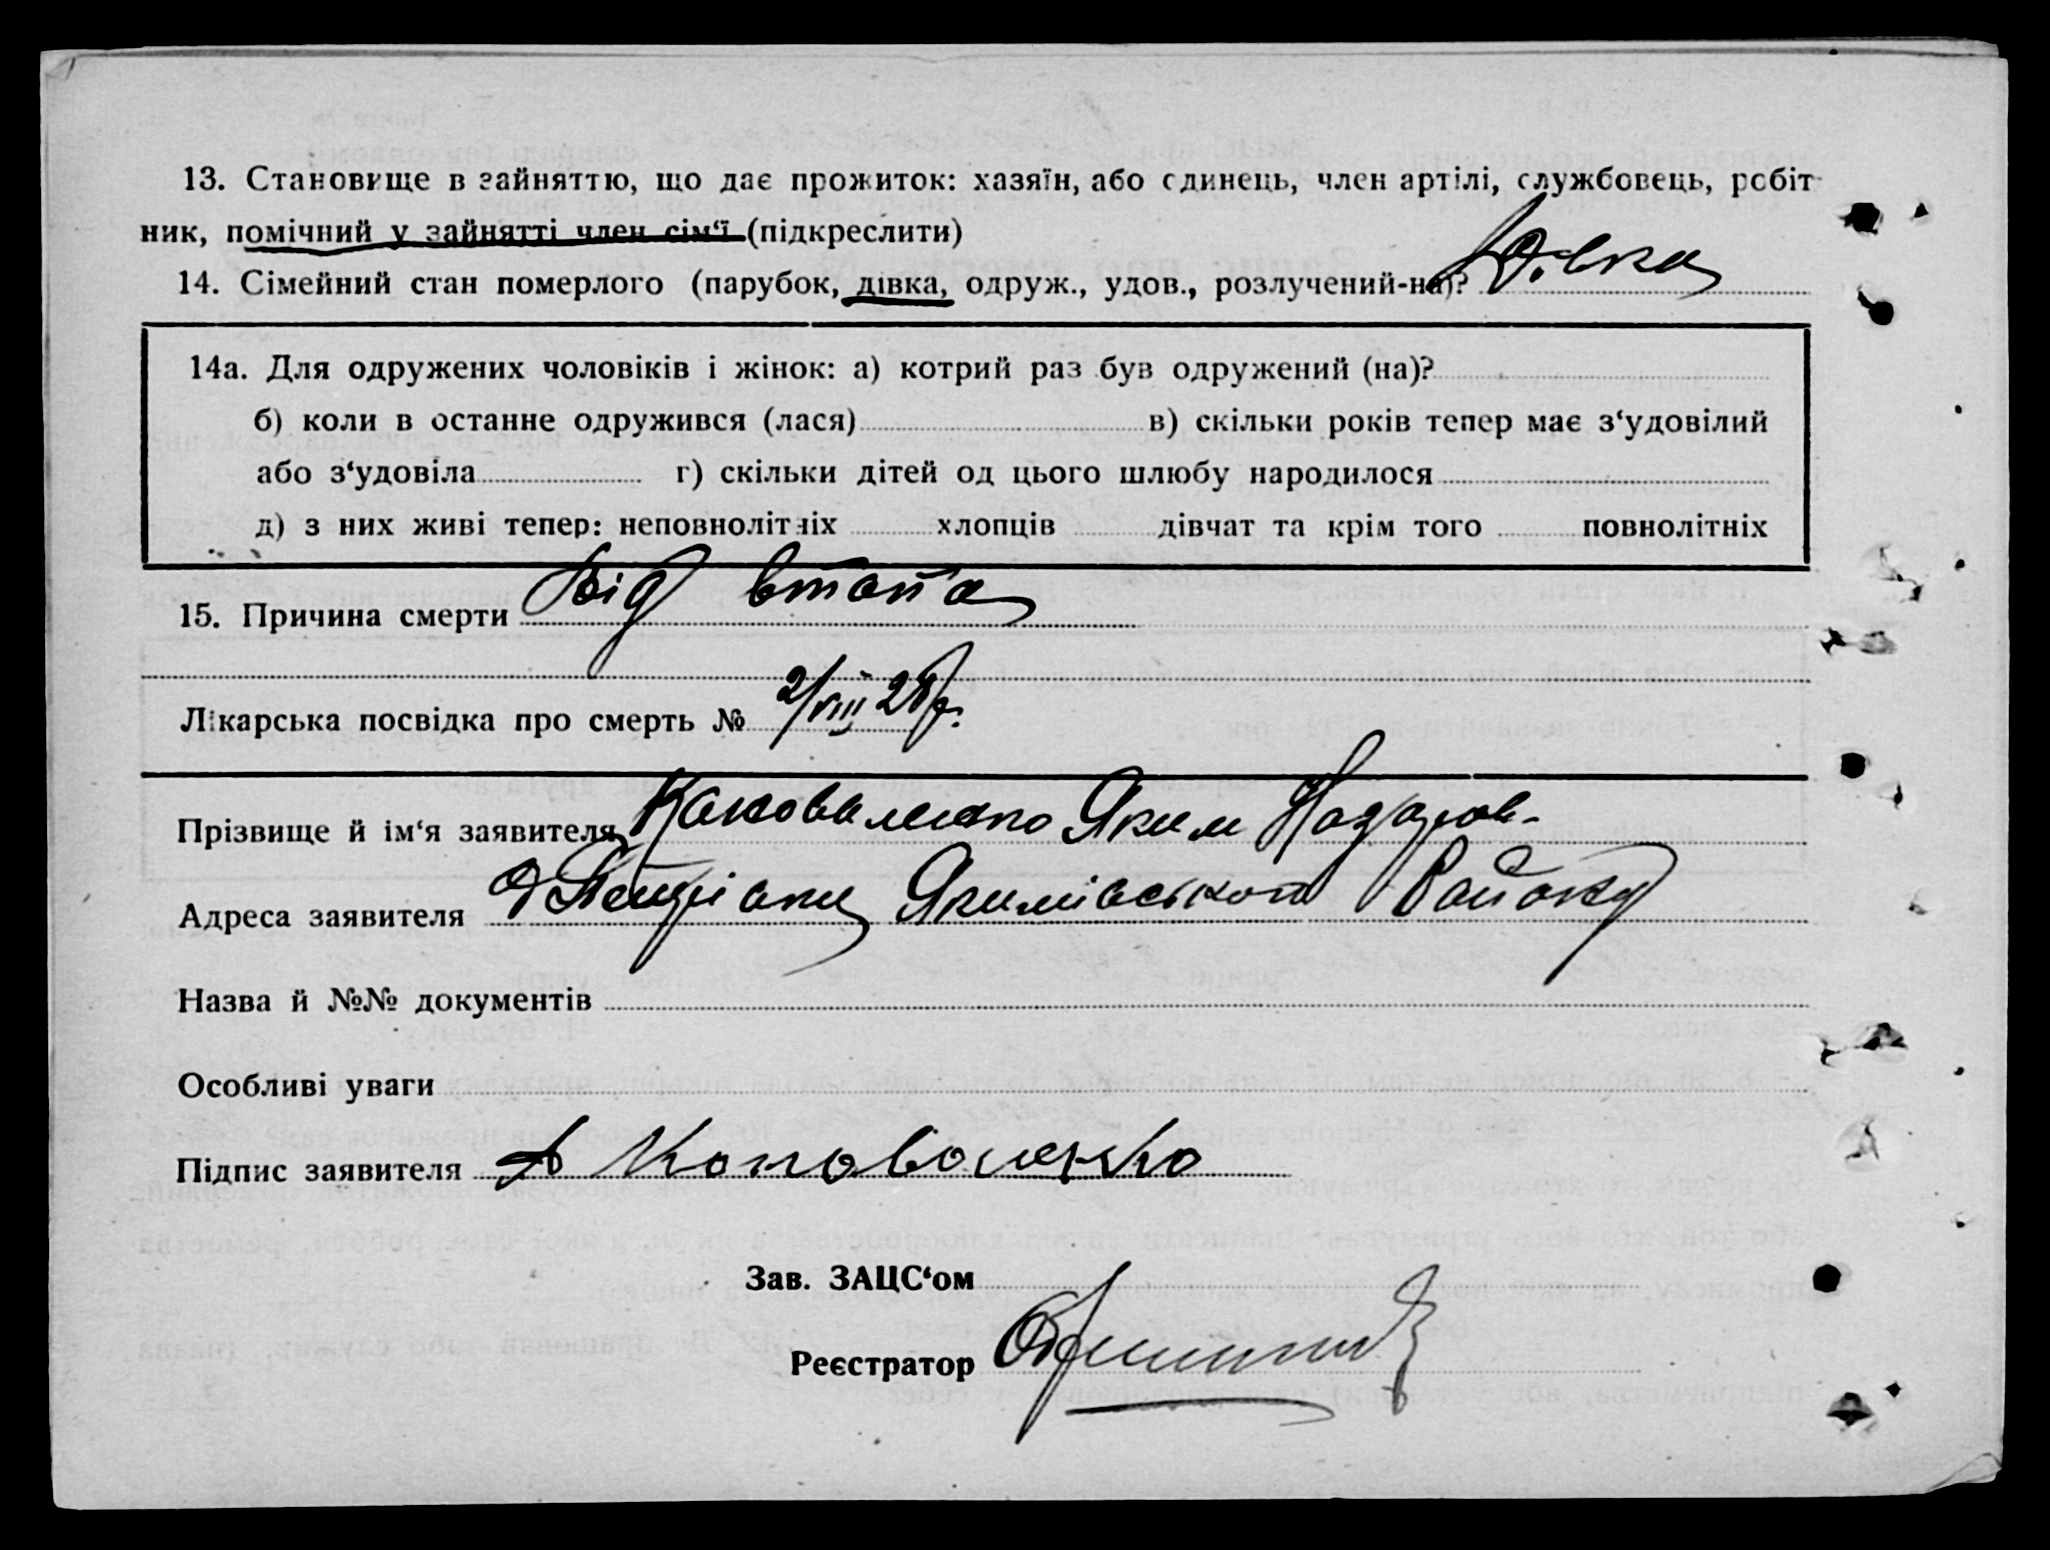 13. Становище в зайняттю, що дає прожиток: хазяїн, або єдинець, член артілі, службовець, робіт-
ник, помічний у зайнятті член сім‘ї (підкреслити)
14. Сімейний стан померлого (парубок, дівка, одруж., удов., розлучений-на)? Дівка
14а. Для одружених чоловіків і жінок: а) котрий раз був одружений (на)?
б) коли в останне одружився (лася) в) скільки років тепер має з‘удовілий
або з‘удовіла г) скільки дітей од цього шлюбу народилося
д) з них живі тепер: неповнолітніх хлопців дівчат та крім того повнолітніх
15. Причина смерти Від
Лікарська посвідка про смерть № 2/VIII 28р.
Прізвище й ім‘я заявителя Коноваленко Яким
Адреса заявителя Якимівського Району
Назва й №№ документів
Особливі уваги
Підпис заявителя Коноваленко
Зав. ЗАЦС‘ом
Реєстратор